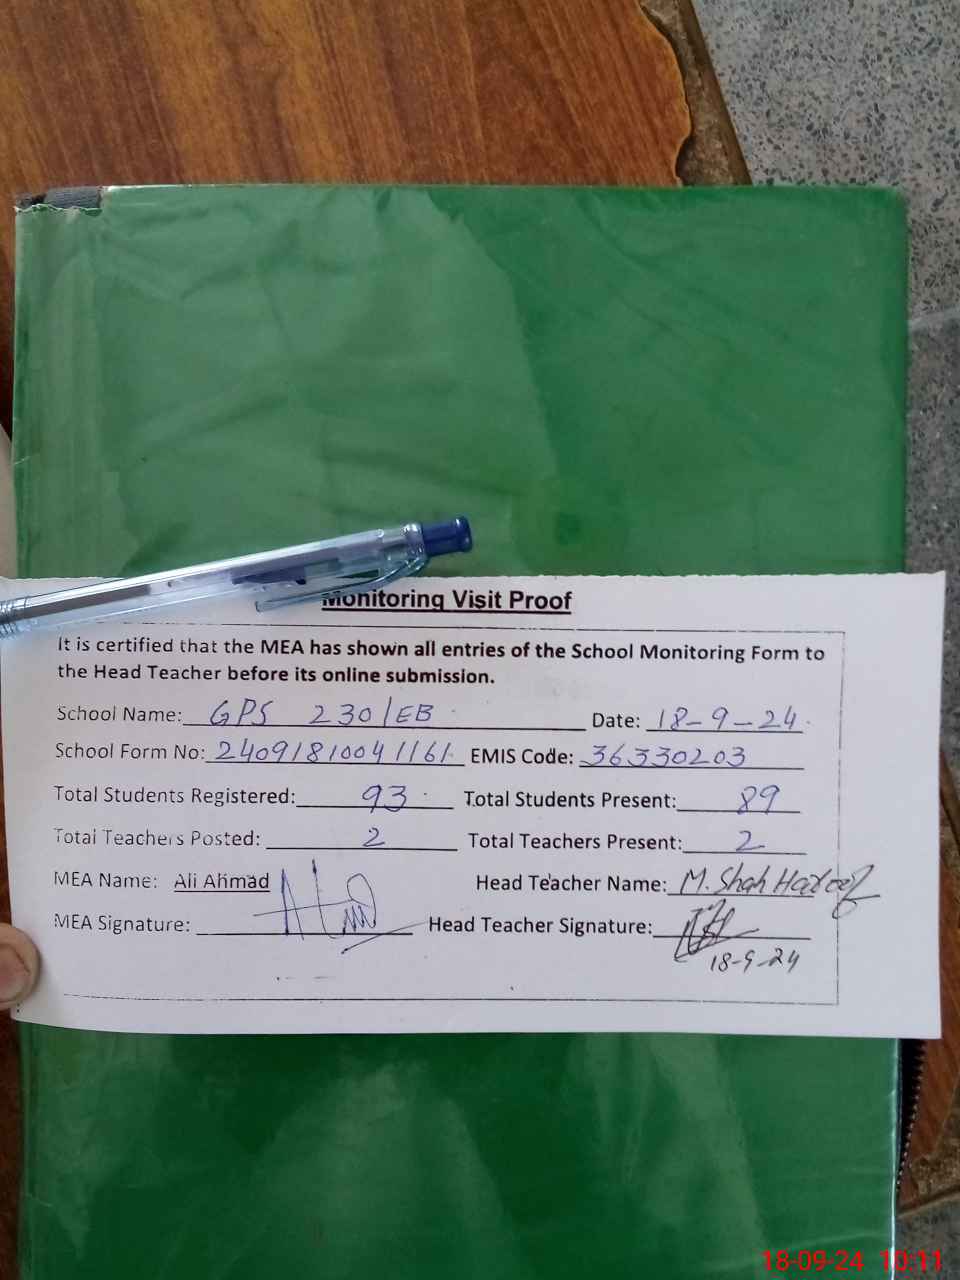 Monitoring Visit Proof
It is certified that the MEA has shown all entries of the School Monitoring Form to
the Head Teacher before its online submission.
School Name: GPS 230/EB Date: 18-9-24
School Form No: 24091810041161 EMIS Code: 36330203
Total Students Registered: 93 Total Students Present: 89
Total Teachers Posted: 2 Total Teachers Present: 2
MEA Name: Ali Ahmad Head Teacher Name: M. Shah Haroof
MEA Signature: Head Teacher Signature:
18-9-24
18-09-24 10:11